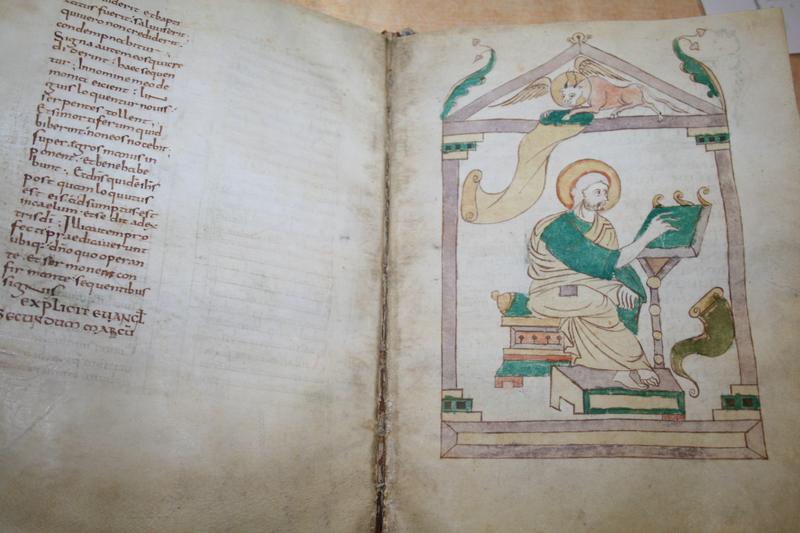 diderit et bapti
zatus fuerit· saluus erit·
quiuero non crediderit·
condempnabitur·
Signa autem eosquicre
diderint· haec sequen
tur; Innomine meo de
monia eicient· lin
guis loquentur nouis·
serpentes tollent·
Etsi mortiferum quid
biberint· non eos nocebit·
super egros manus in
ponent· et bene habe
bunt· Et dn̄s quidem ih̄s
post quam locutus
est eis· adsumptus est
incaelum· et sedit adex
tris dī· Illi autem pro
fecti predicauerunt
ubiq; dn̄o quo operan
te· et sermonem con
firmante sequentibus
signis
EXPLICIT EUANGL̄
SECUNDUM MARCŪ